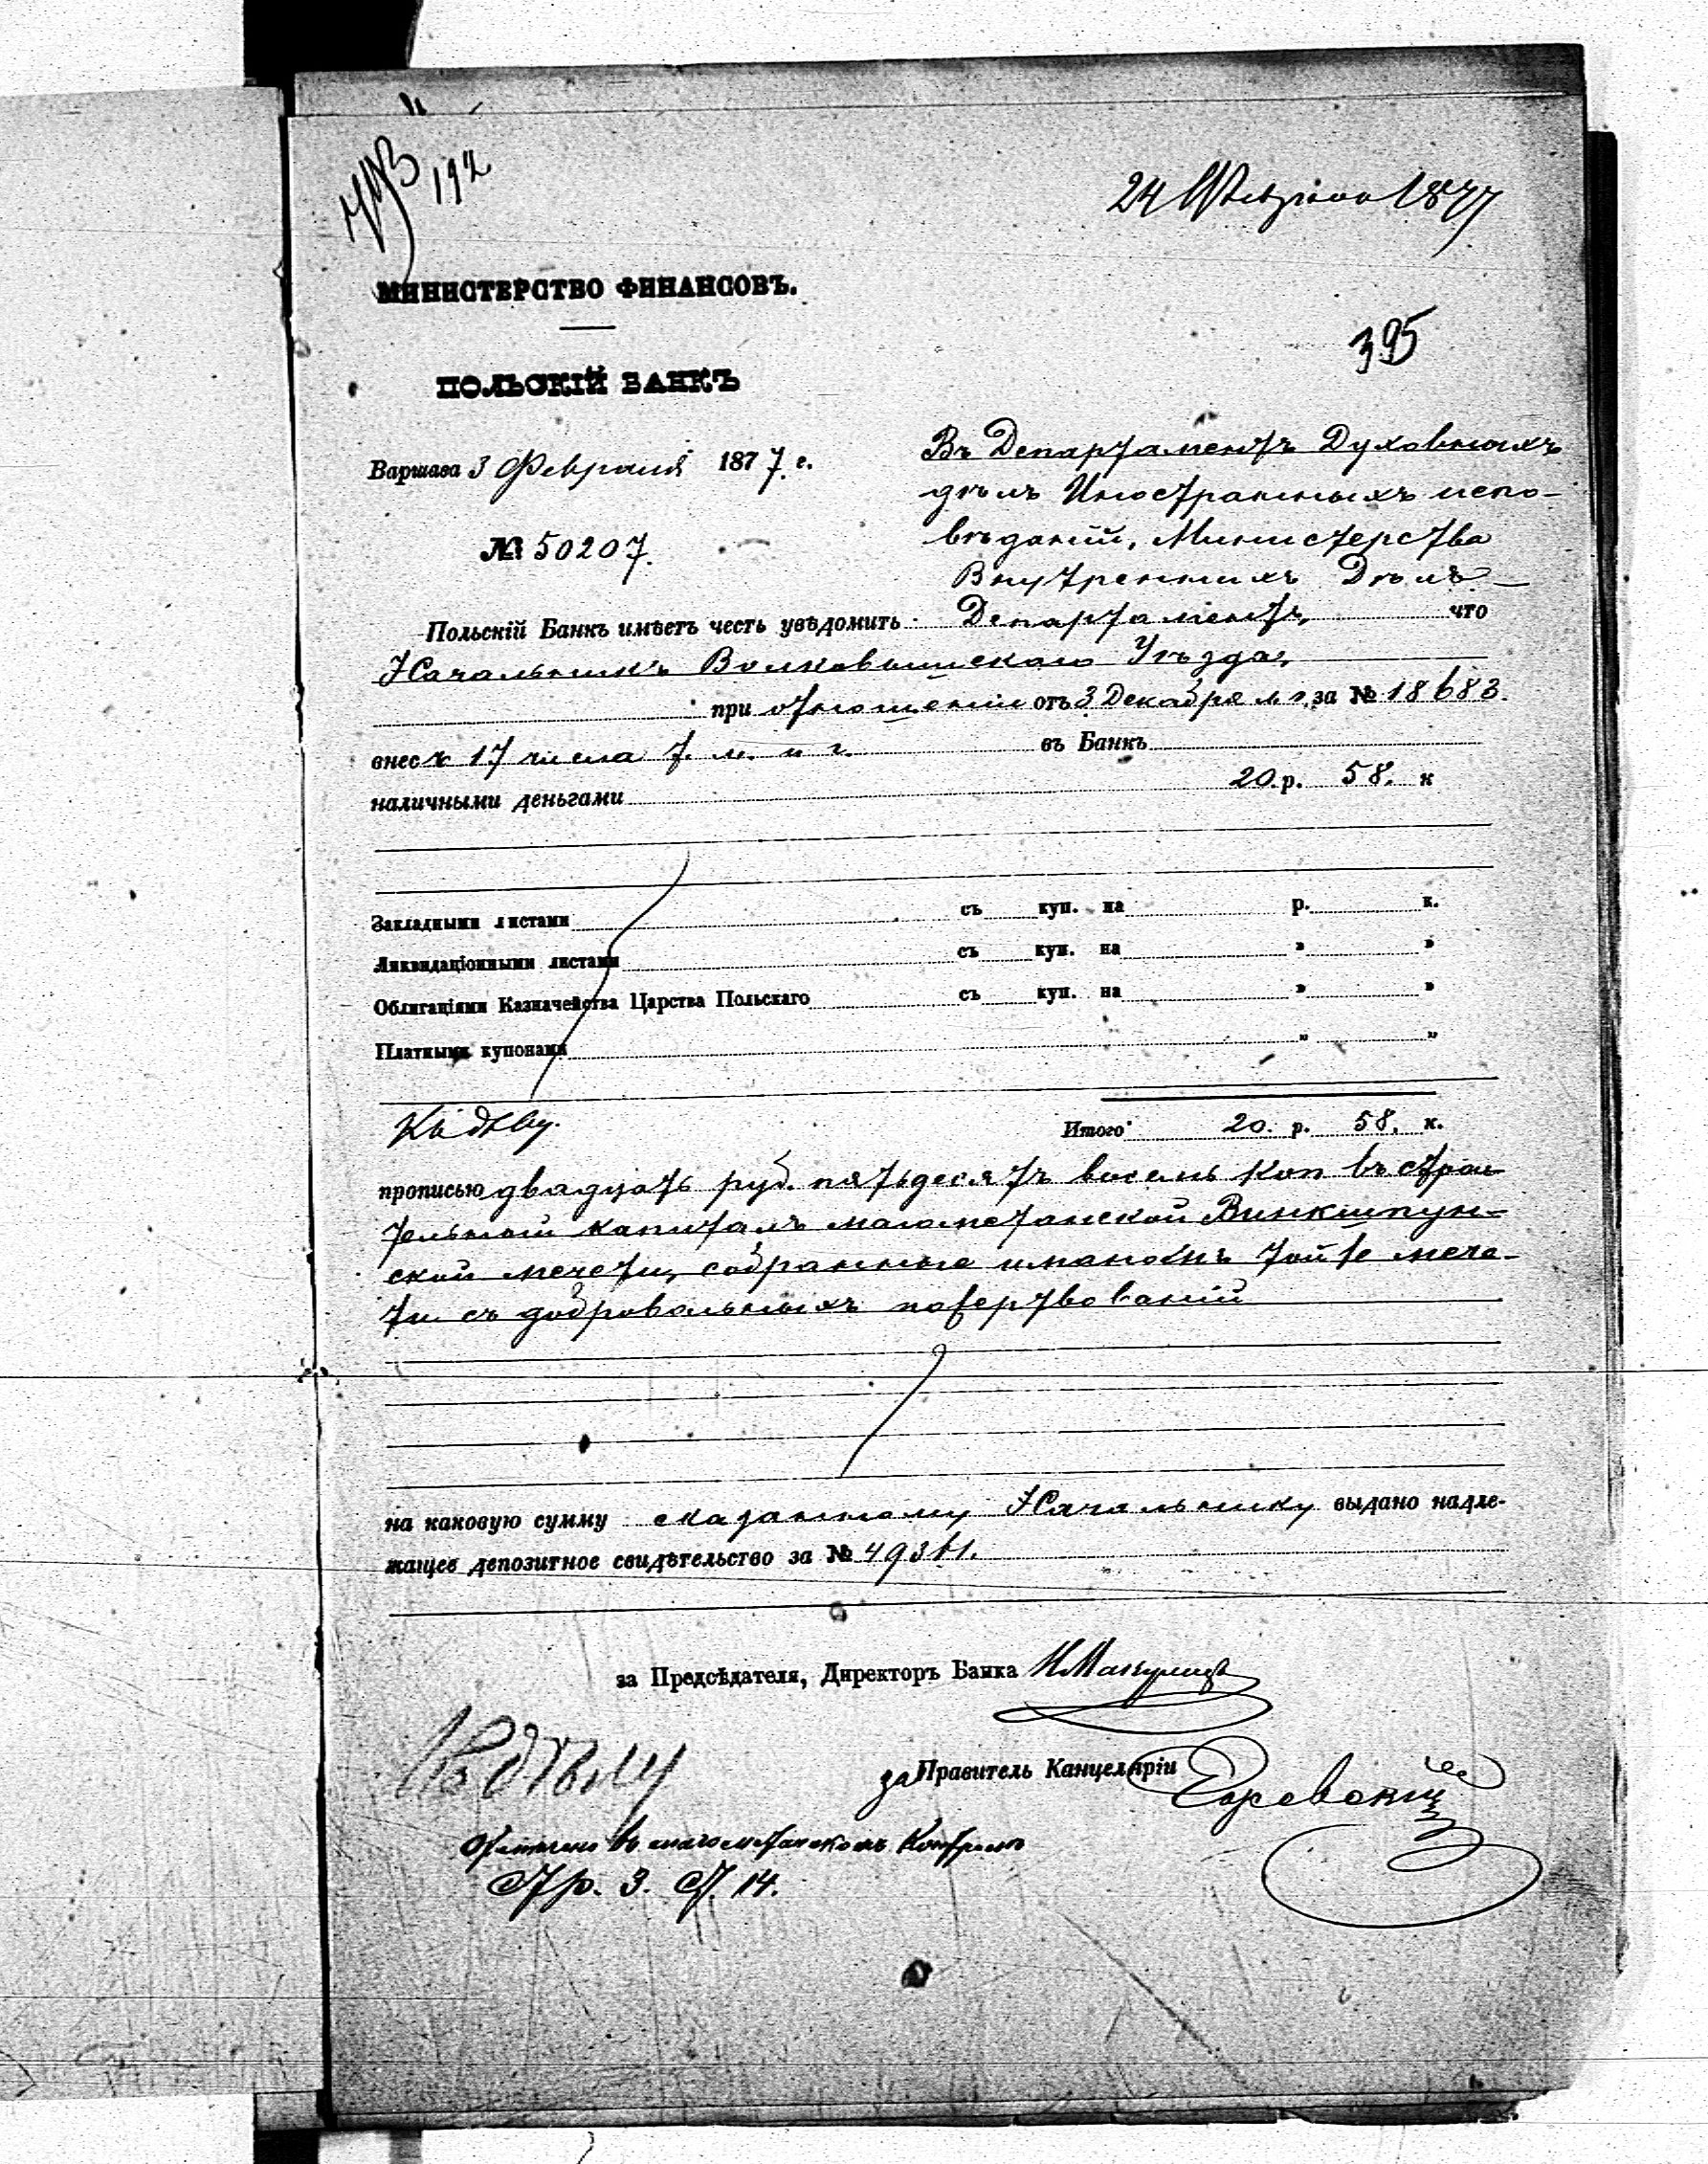 192
24 Февраля 1877
МИНИСТЕРСТВО ФИНАНСОВЪ.
395
ПОЛЬСКІЙ БАНКЪ
Варшава 3 Февраля 1877 г.
№ 50207.
Въ Департаментъ Духовныхъ
дѣлъ Иностранныхъ испо-
вѣданій, Министерства
Внутреннихъ Дѣлъ
Польскій Банкъ имѣетъ честь увѣдомить Департаментъ, что
Начальникъ Волковышскаго Уѣзда,
при отношеніи отъ 3 Декабря м. г. за № 18683.
внесъ 17 числа т. м. и г. въ Банкъ
наличными деньгами 20. р. 58. к
Закладными листами съ куп. на р. к.
Ликвидаціонными листами съ куп. на " "
Облигаціями Казначейства Царства Польскаго съ куп. на " "
Платными купонами " "
Къ дѣлу.
Итого 20. р. 58. к.
прописью двадцать руб. пятьдесятъ восемь коп въ строи-
тельный капиталъ магометанской Винкшпун-
ской мечети, собранные имамомъ той же мече-
ти съ добровольныхъ пожертвованій
на каковую сумму сказанному Начальнику выдано надле-
жащее депозитное свидѣтельство за № 49361.
за Предсѣдателя, Директоръ Банка
Къ дѣлу
за Правитель Канцеляріи
Отмѣчено въ магометанскомъ Контролѣ
Стр. 3. Ст. 14.